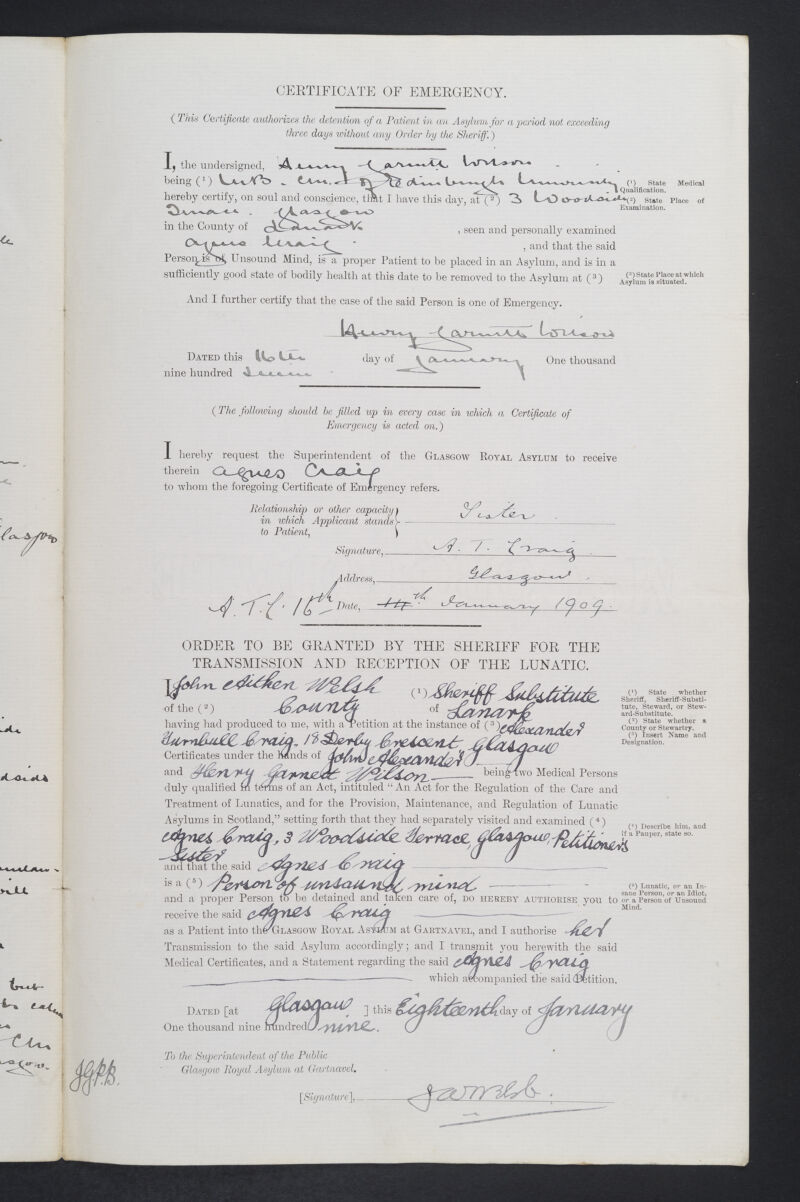 CERTIFICATE OF EMERGENCY.
(This Certificate authorizes the detention of a Patient in an Asylum for a period not exceeding
three days without any Order by the Sheriff.)
I, the undersigned, Henry Garnett Wilson
being (1) M.B. Ch.B. of Edinburgh University
hereby certify, on soul and conscience, that I have this day, at (2) 3 Woodside
Terrace. Glasgow
in the County of Lanark , seen and personally examined
Agnes Craig , and that the said
Person is of Unsound Mind, is a proper Patient to be placed in an Asylum, and is in a
sufficiently good state of bodily health at this date to be removed to the Asylum at (3)
(1) State Medical
Qualification.
(2) State Place of
Examination.
(3) State Place at which
Asylum is situated.
And I further certify that the case of the said Person is one of Emergency.
Henry Garnett Wilson
DATED this 16th day of January One thousand
nine hundred
(The following should be filled up in every case in which a Certificate of
Emergency is acted on.)
I hereby request the Superintendent of the GLASGOW ROYAL ASYLUM to receive
therein Agnes Craig
to whom the foregoing Certificate of Emergency refers.
Relationship or other capacity
in which Applicant stands
to Patient,
Sister
Signature, A. T. Craig
Address, Glasgow.
A.T.C. 16th Date, 14th January 1909.
ORDER TO BE GRANTED BY THE SHERIFF FOR THE
TRANSMISSION AND RECEPTION OF THE LUNATIC.
I John Aitken Welsh (1) Sheriff Substitute
of the (2) County of Lanark
having had produced to me, with a Petition at the instance of (3) Alexander
Turnbull Craig, 18 Derby Crescent, Glasgow
Certificates under the hands of John Alexander
and Henry Garnett Wilson being two Medical Persons
duly qualified in terms of an Act, intituled "An Act for the Regulation of the Care and
Treatment of Lunatics, and for the Provision, Maintenance, and Regulation of Lunatic
Asylums in Scotland," setting forth that they had separately visited and examined (4)
Agnes Craig, 3 Woodside Terrace, Glasgow, Petitioner's
Sister
and that the said Agnes Craig
is a (5) Person of unsound mind
and a proper Person to be detained and taken care of, DO HEREBY AUTHORISE you to
receive the said Agnes Craig
as a Patient into the GLASGOW ROYAL ASYLUM at GARTNAVEL, and I authorise her
Transmission to the said Asylum accordingly; and I transmit you herewith the said
Medical Certificates, and a Statement regarding the said Agnes Craig
which accompanied the said Petition.
(1) State whether
Sheriff, Sheriff-Substi-
tute, Steward, or Stew-
ard-Substitute.
(2) State whether a
County or Stewartry.
(3) Insert Name and
Designation.
(4) Describe him, and
if a Pauper, state so.
(5) Lunatic, or an In-
sane Person, or an Idiot,
or a Person of Unsound
Mind.
DATED [at Glasgow ] this Eighteenth day of January
One thousand nine hundred nine.
To the Superintendent of the Public
Glasgow Royal Asylum at Gartnavel.
J.G.P.B.
[Signature], J A Welsh.